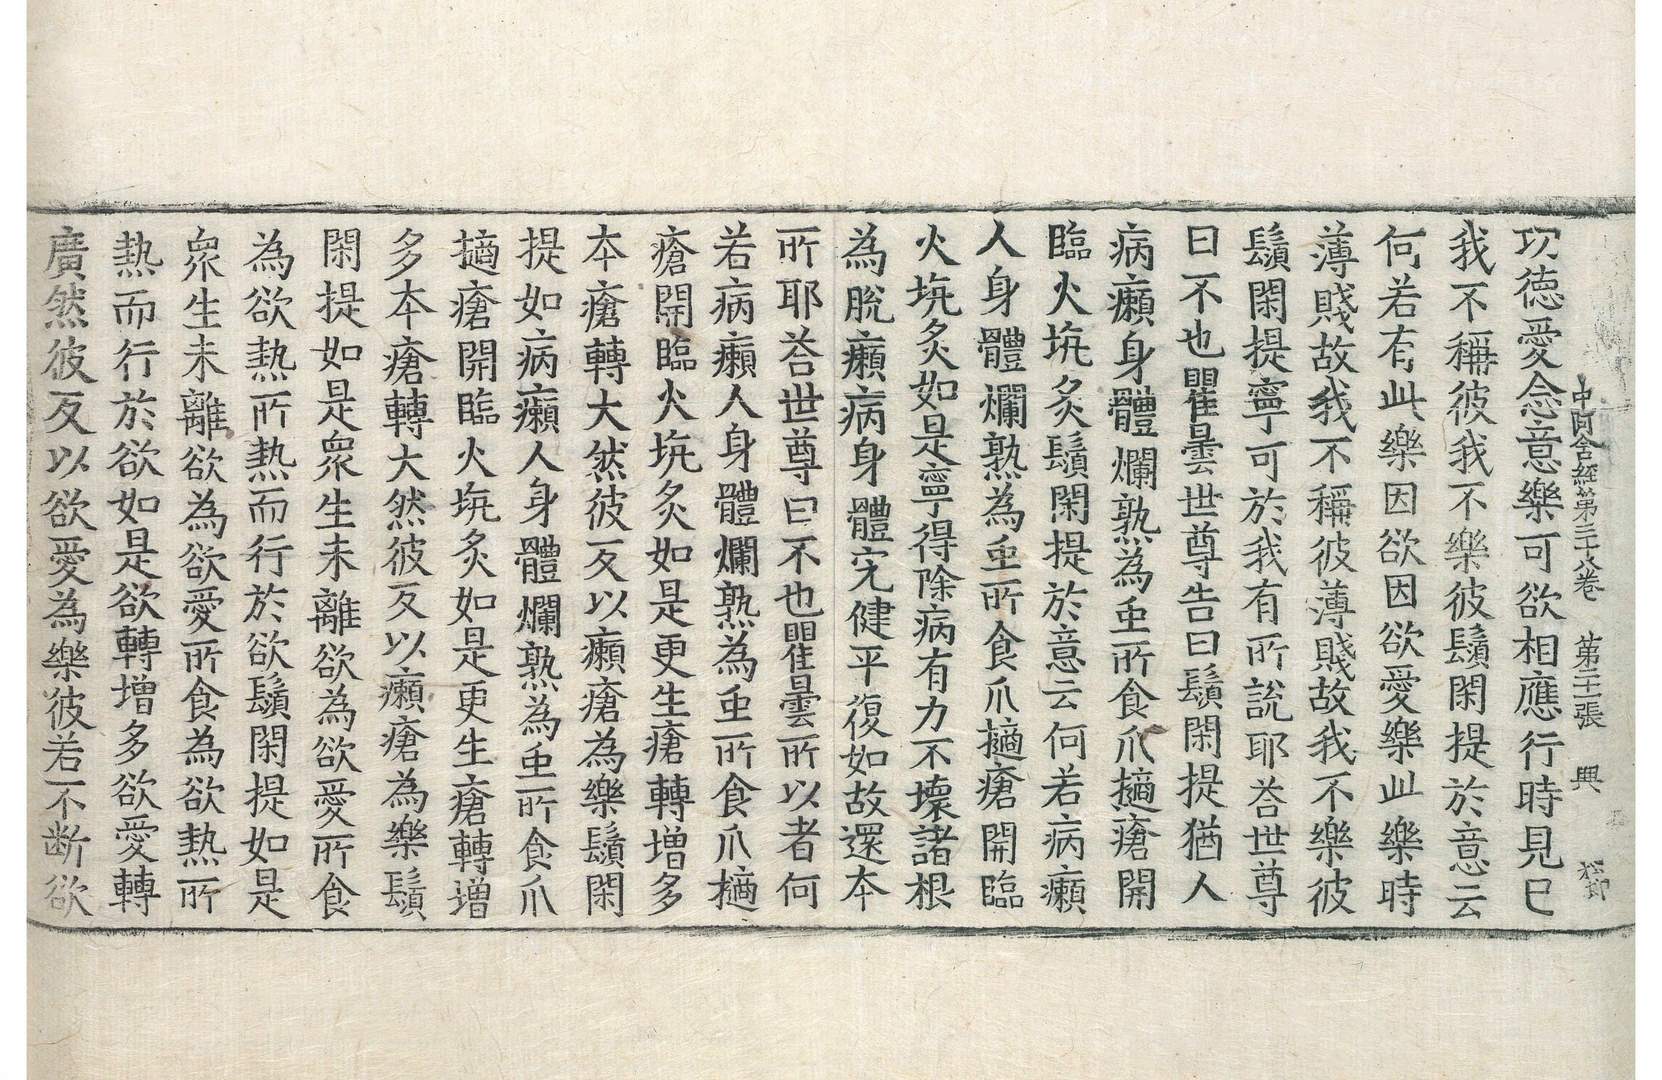 中阿含經第三十八卷 張 興
功德愛念意樂可欲相應行時見已
我不稱彼我不樂彼鬚閑提於意云
何若有此樂因欲因欲愛樂此樂時
薄賤故我不稱彼薄賤故我不樂彼
鬚閑提寧可於我有所說耶荅世尊
曰不也瞿曇世尊告曰鬚閑提猶人
病癩身體爛熟為虫所食爪擿瘡開
臨火坑炙鬚閑提於意云何若病癩
人身體爛熟為虫所食爪擿瘡開臨
火坑炙如是寧得除病有力不壞諸根
為脫癩病身體完健平復如故還本
所耶荅世尊曰不也瞿曇所以者何
若病癩人身體爛熟為虫所食爪擿
瘡開臨火坑炙如是更生瘡轉增多
本瘡轉大然彼反以癩瘡為樂鬚閑
提如病癩人身體爛熟為虫所食爪
擿瘡開臨火坑炙如是更生瘡轉增
多本瘡轉大然彼反以癩瘡為樂鬚
閑提如是眾生未離欲為欲愛所食
為欲熱所熱而行於欲鬚閑提如是
眾生未離欲為欲愛所食為欲熱所
熱而行於欲如是欲轉增多欲愛轉
廣然彼反以欲愛為樂彼若不斷欲